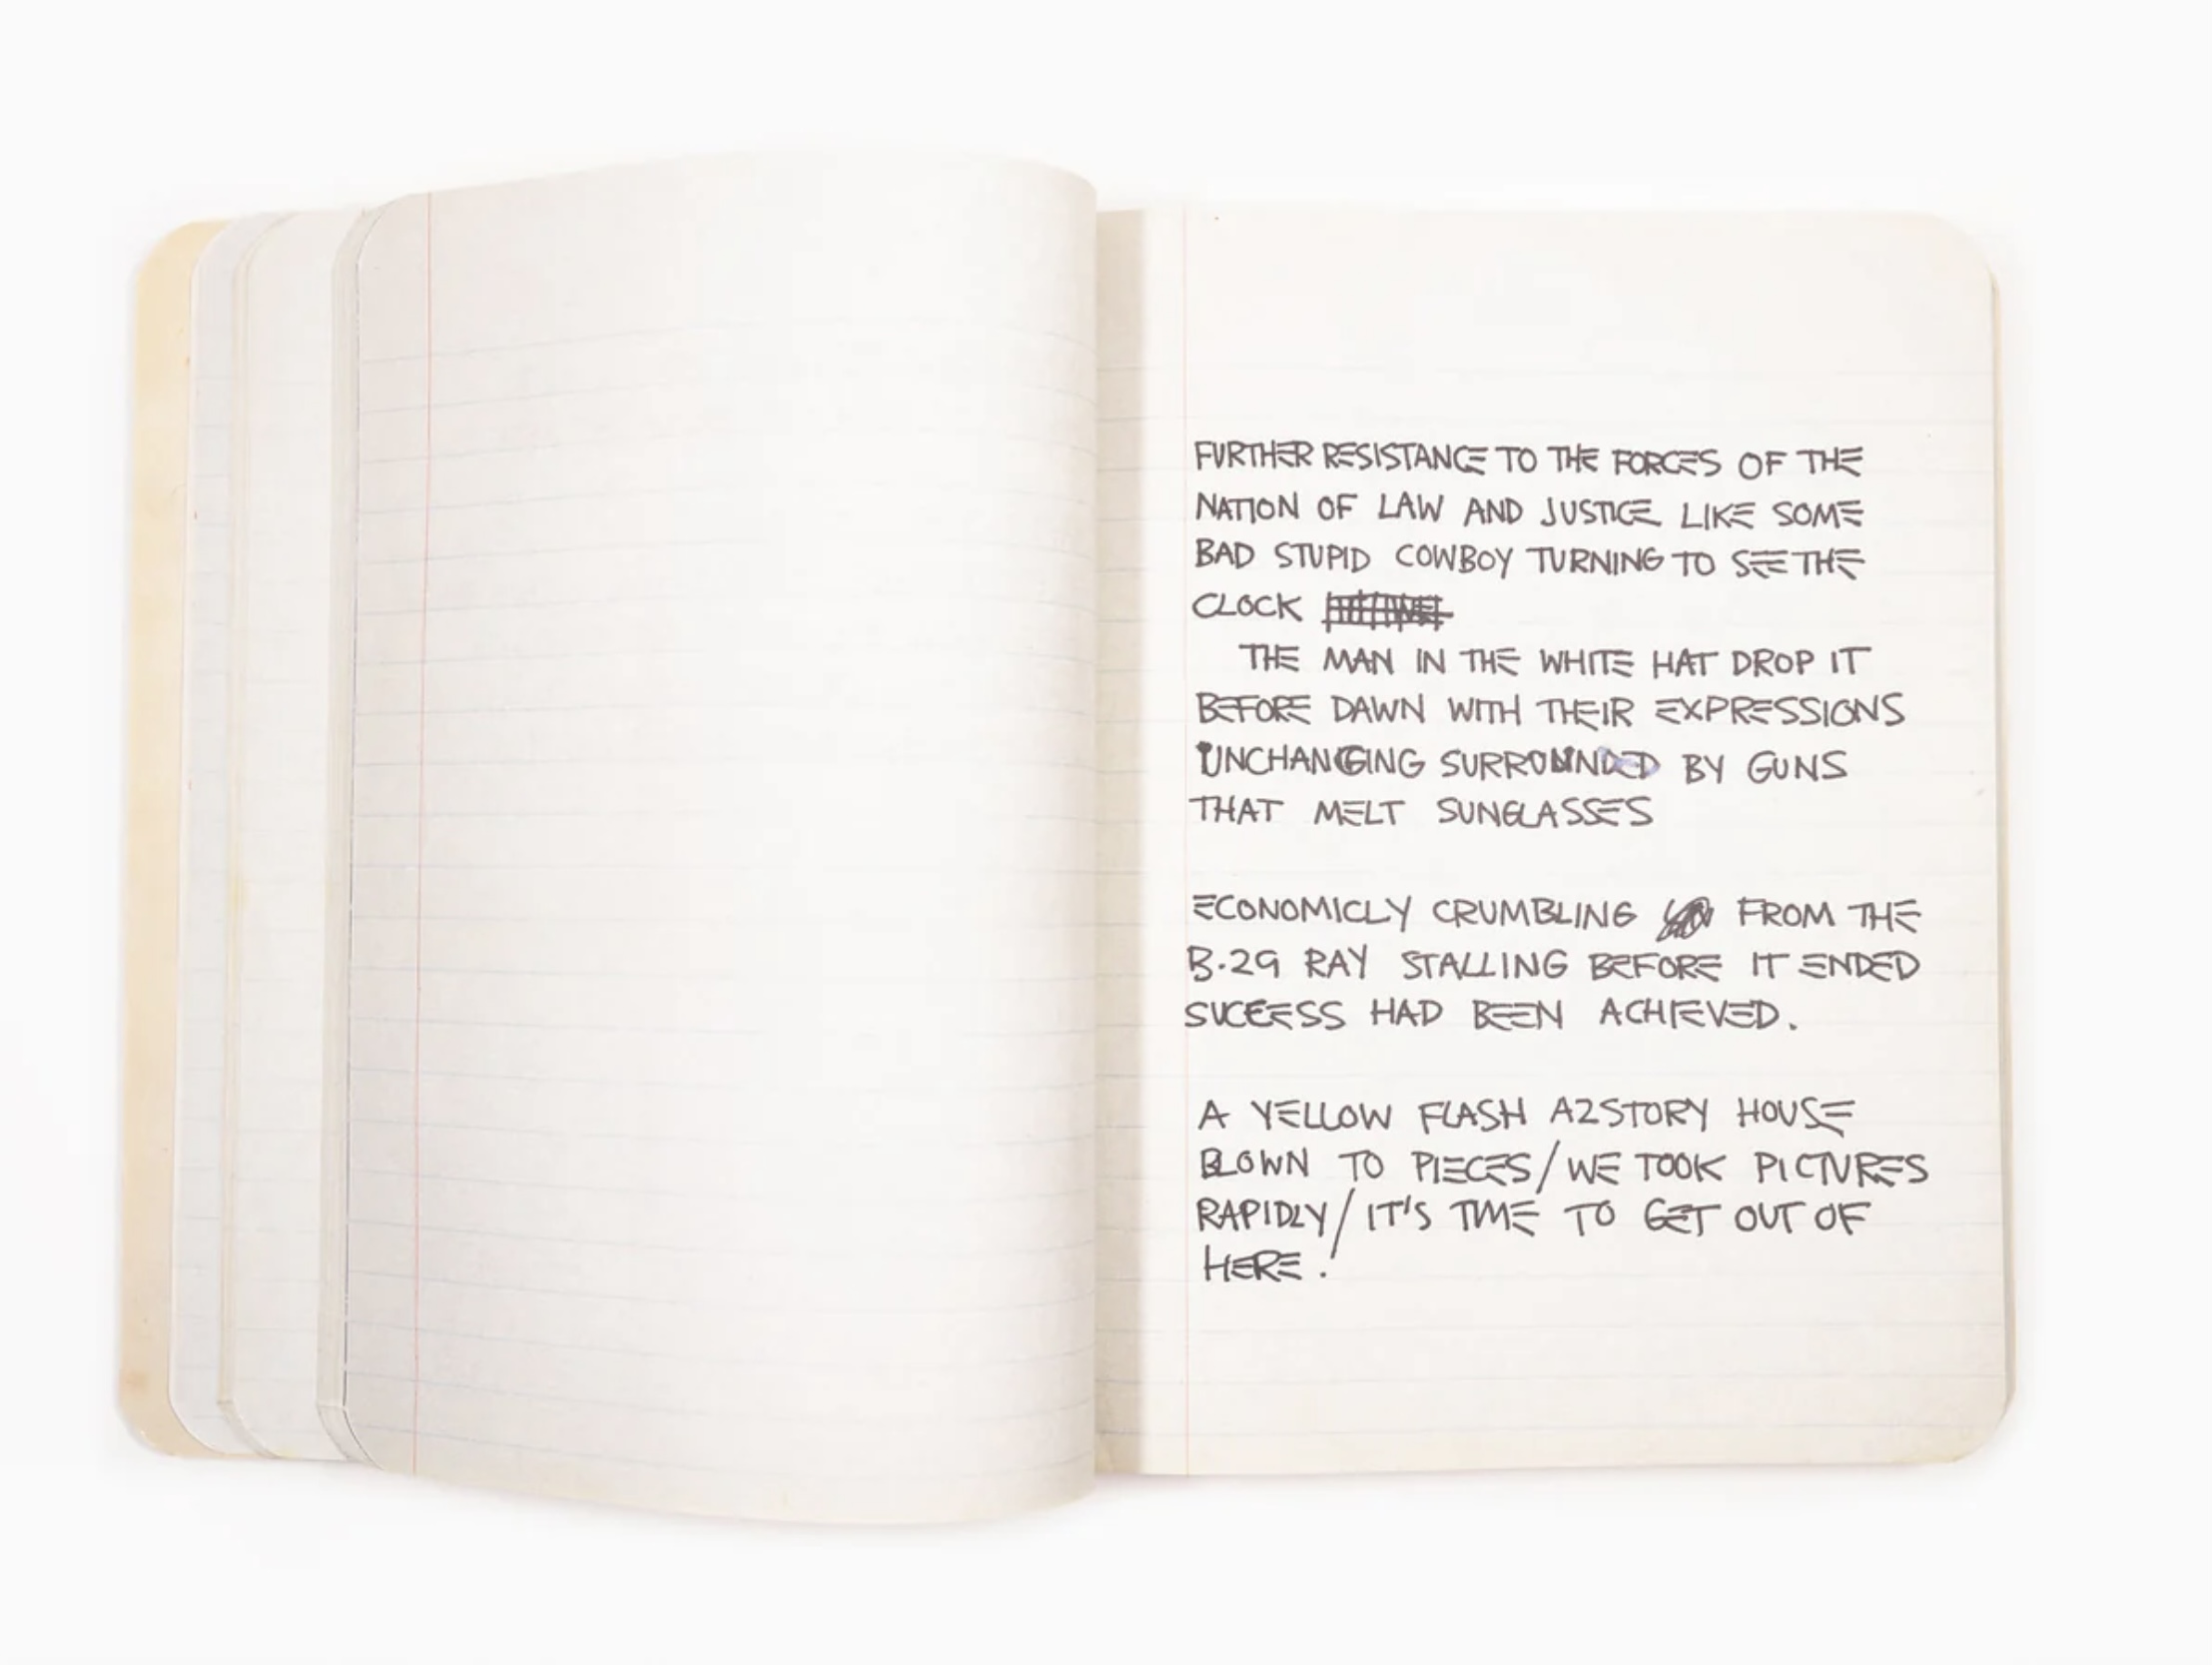 FURTHER RESISTANCE TO THE FORCES OF THE
NATION OF LAW AND JUSTICE LIKE SOME
BAD STUPID COWBOY TURNING TO SEE THE
CLOCK
THE MAN IN THE WHITE HAT DROP IT
BEFORE DAWN WITH THEIR EXPRESSIONS
UNCHANGING SURROUNDED BY GUNS
THAT MELT SUNGLASSES
ECONOMICLY CRUMBLING FROM THE
B-29 RAY STALLING BEFORE IT ENDED
SUCCESS HAD BEEN ACHIEVED.
A YELLOW FLASH A 2 STORY HOUSE
BLOWN TO PIECES/WE TOOK PICTURES
RAPIDLY/IT'S TIME TO GET OUT OF
HERE.